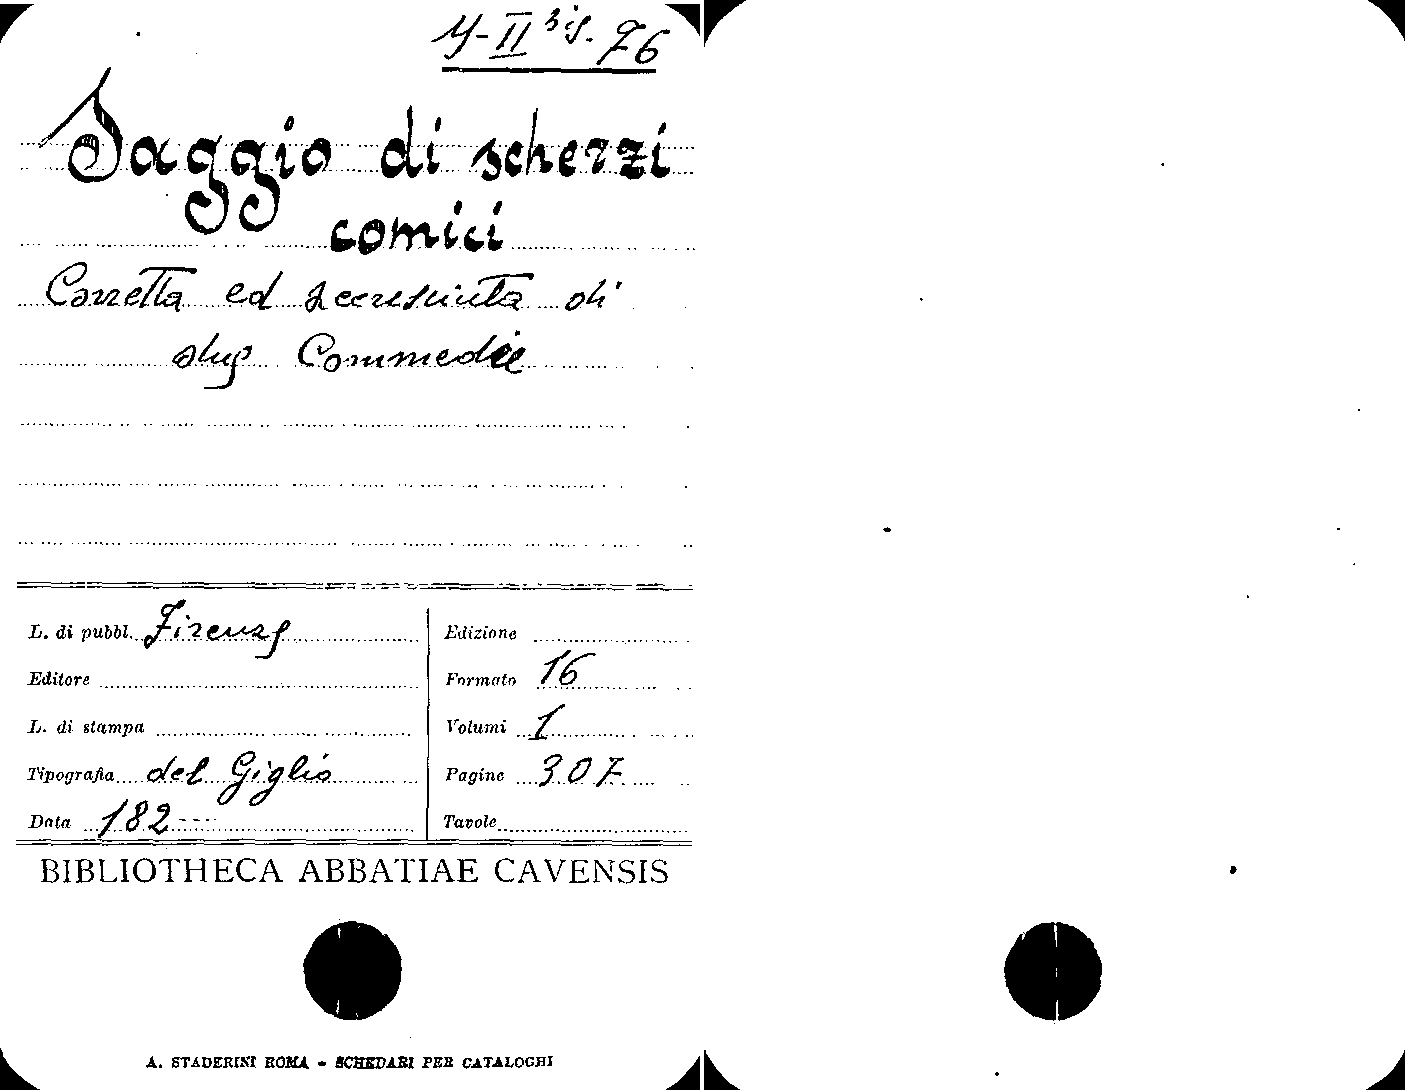 Y-II 3is. 76
Saggio di scherzi
comici
Corretta ed accresciuta di
due Commedie
L. di pubbl. Firenze
Editore
L. di stampa
Tipografia del Giglio
Data 182---
Edizione
Formato 16
Volumi 1
Pagine 307
Tavole
BIBLIOTHECA ABBATIAE CAVENSIS
A. STADERINI ROMA - SCHEDARI PER CATALOGHI